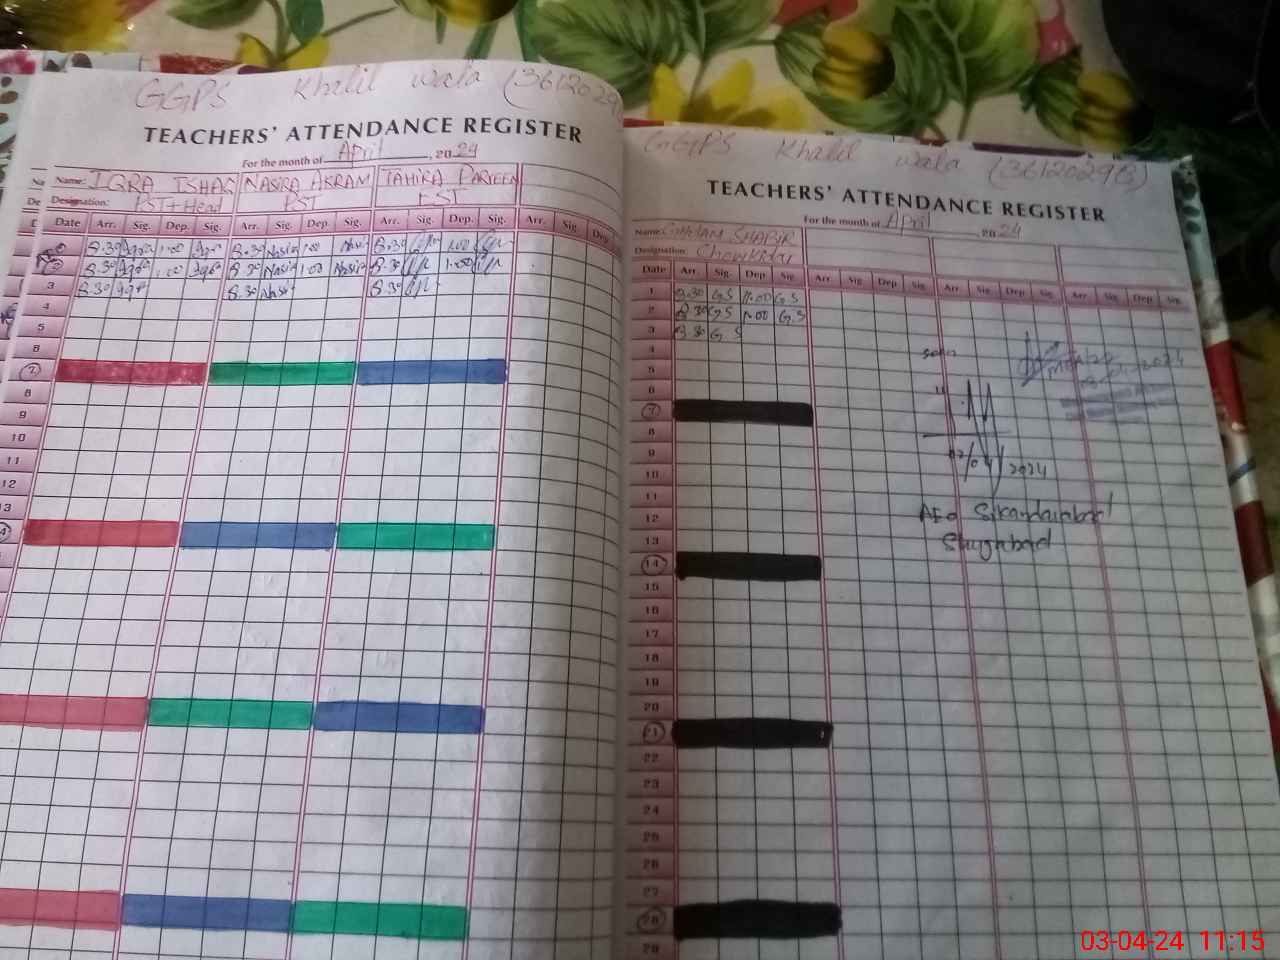 GGPS Khalil wala (3612029
TEACHERS' ATTENDANCE REGISTER
For the month of April, 2024
Name: IQRA ISHAQ NASIRA AKRAM TAHIRA PARVEEN
Designation: PST+Head PST EST
Date Arr. Sig. Dep. Sig. Arr. Sig. Dep. Sig. Arr. Sig. Dep. Sig. Arr. Sig. Dep.
8.30 Iqra 1.00 Iqra 8.30 Nasir 1.00 Nasir 8.30 1.00
8.30 Iqra 1.00 Iqra 8.30 Nasir 1.00 Nasir 8.30 1.00
3 8.30 Iqra 8.30 Nasir 8.30
4
5
6
7
8
9
10
11
12
13
GGPS Khalil wala (36120298)
TEACHERS' ATTENDANCE REGISTER
For the month of April 2024
Name: GHULAM SHABIR
Designation: Chowkidar
Date Arr. Sig. Dep. Sig. Arr. Sig. Dep. Sig. Arr. Sig. Dep. Sig. Arr. Sig. Dep. Sig.
1 8.30 G.S 1.00 G.S
2 8.30 G.S 1.00 G.S
3 8.30 G.S
4
5
6
7
8
9
10
11
12
13
14
15
16
17
18
19
20
21
22
23
24
25
26
27
28
29
02/04/2024
AEO Sikandarabad
Shujabad
03-04-24 11:15